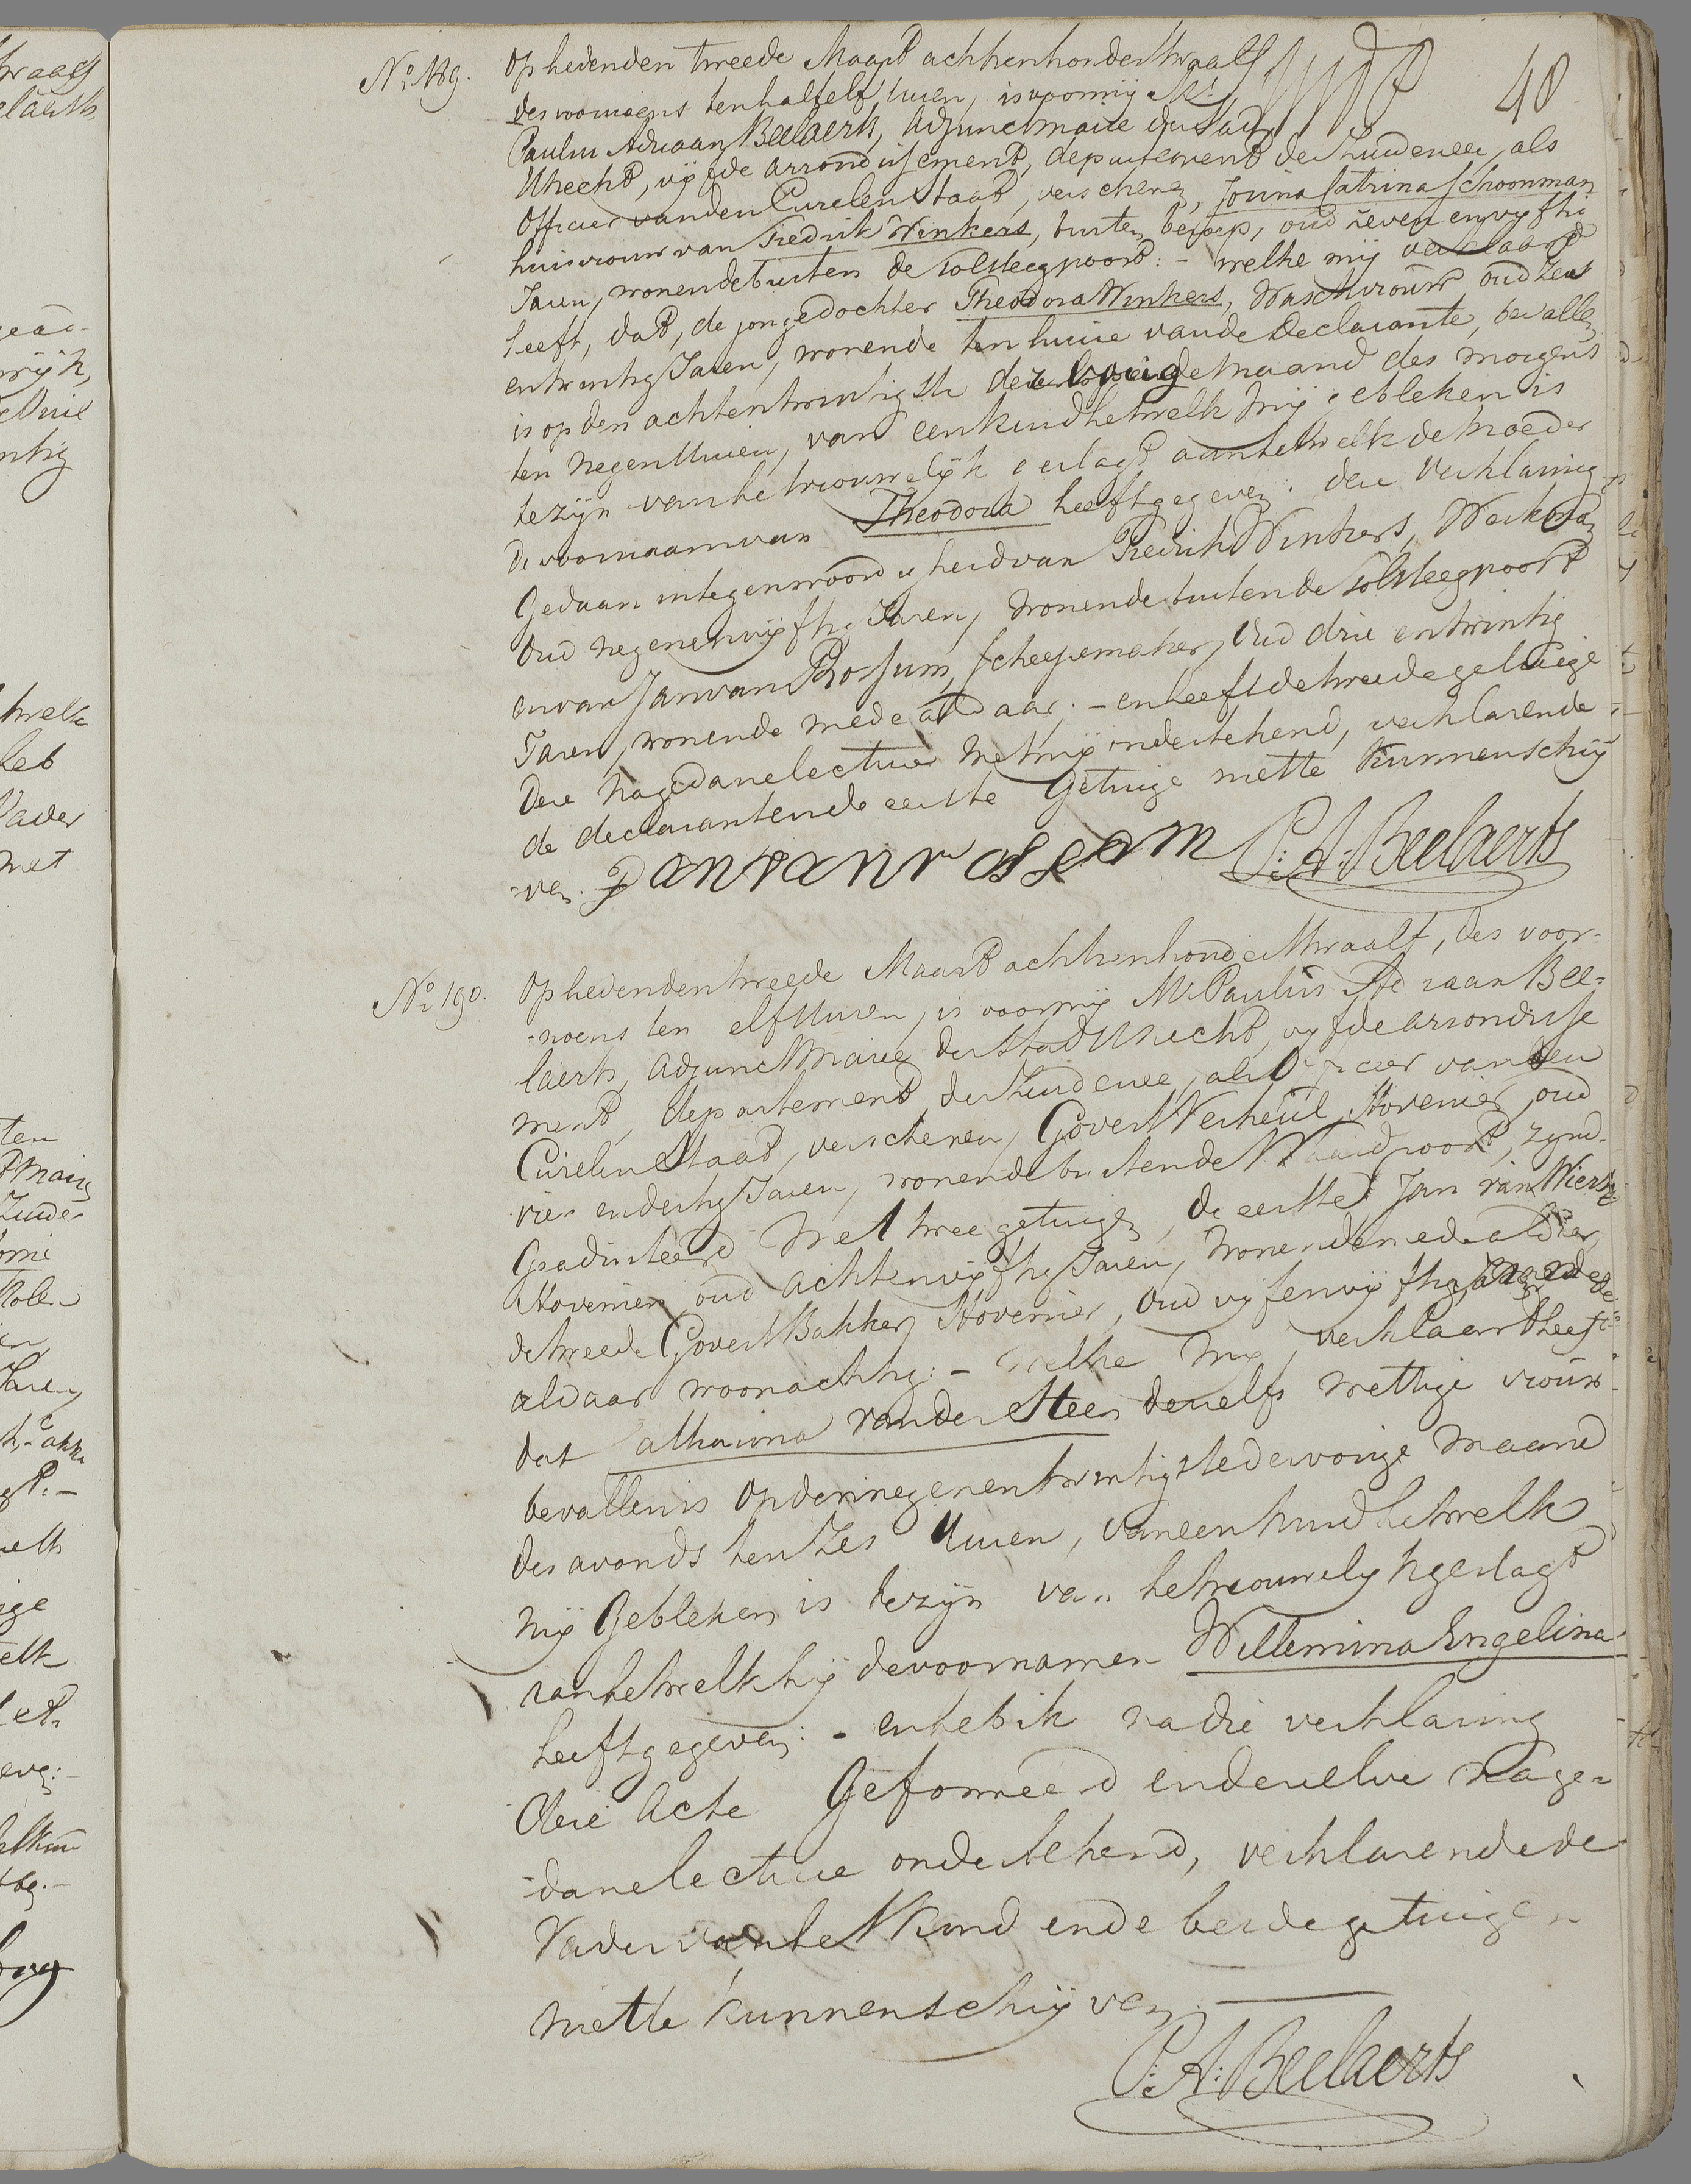 48
No 189.
Op hedenden tweede Maart achttienhonderttwaalf
des voormidens ten half elf uuren, is voor mij Mr.
Paulus Adriaan Beelaerts, Adjunct maire der Stad
Utrecht, vijfde arrondissement, departement der Zuiderzee, als
Officier van den Curelen Staat, verschenen, Jorina Catrina Schoonman
huisvrouw van Fredrik Winkers, buiten beroep, oud zeven en vyftig
Jaren, wonende buiten de Tolsteegpoort: - welke mij verklaard
heeft, dat, de jongedochter Theodora Winkers, Waschvrouw oud zes
entwintig Jaren, wonende ten huise van de Declarante, bevallen
is op den achtentwintigste der vorige maand des morgens
ten negen Uuren, van een kind hetwelk mij gebleken is
te zijn van het vrouwelijk geslagt aan hetwelk de moeder
de voornaam van Theodora heeft gegeven. deze Verklaring
Gedaan in tegenwoordigheid van Fredrik Winkers, Werkman
Oud negenenvijftig Jaren, wonende buiten de Tolsteegpoort
en van Jan van Rossum, scheepemaker, Oud drie entwintig
Jaren, wonende mede aldaar; - en heeft de tweede getuige
Deze na gedane lectuure met mij ondertekend, verklarende
de declarante en de eerste Getuige niet te kunnen schrij
-ven. Jan van rossum P: A: Beelaerts
No 190.
Op hedenden tweede Maart achttienhonderttwaalf, des voor-
-noens ten elf Uuren, is voor mij Mr. Paulus Adriaan Bee-
laerts, Adjunct Maire der Stad Utrecht, vijfde arrondisse
ment, departement der Zuiderzee, als Officier van den
Curelen Staat, verschenen, Govert Verheul, Hovenier, oud
vier en dertig Jaren, wonende buiten de Waardpoort, zynd-
Geadsisteerd Met twee getuigen, de eerste Jan van
Hovenier, oud achtenvijftig Jaren, wonende mede aldaar,
de tweede Govert Bakker, Hovenier, Oud vyfenvijftig Jaren mede
aldaar woonachtig: - welke mij verklaard heeft
dat Catharina van der Steen deszelfs wettige vrouw
bevallen is Op den negenentwintigste der vorige maand
des avonds ten zes Uuren, van een kind hetwelk
mij Gebleken is te zijn van het vrouwelyk geslagt
aan hetwelk hij de voornamen Willemina Engelina
heeft gegeven: - en heb ik na die verklaring
deze Acte Geformeerd en dezelve nage-
-dane lectuure ondertekend, verklarende de
Vader van het Kind en de beide getuigen
niet te kunnen schrijven.
P: A: Beelaerts